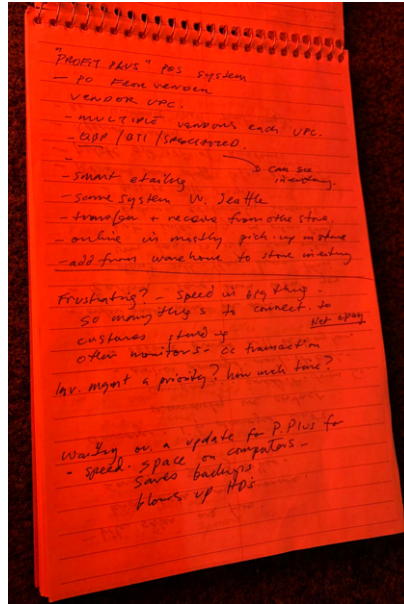 "PROFIT PLUS" POS SYSTEM
- PO FROM VENDOR
VENDOR UPC.
- MULTIPLE vendors each UPC.
- QBP / BTI / SPECIALIZED.
-
→ can see inventory.
- smart etailing
- same system W. Seattle
- transfer + receive from other store.
- online is mostly pick up in store
- add from warehouse to store inventory
Frustrating? - speed is big thing -
so many things to connect to
Net epay
customers stand
other monitors - cc transaction
Inv. mgmt a priority? how much time?
waiting on a update for P. Plus for
- speed. space on computers -
saves backups
HD's